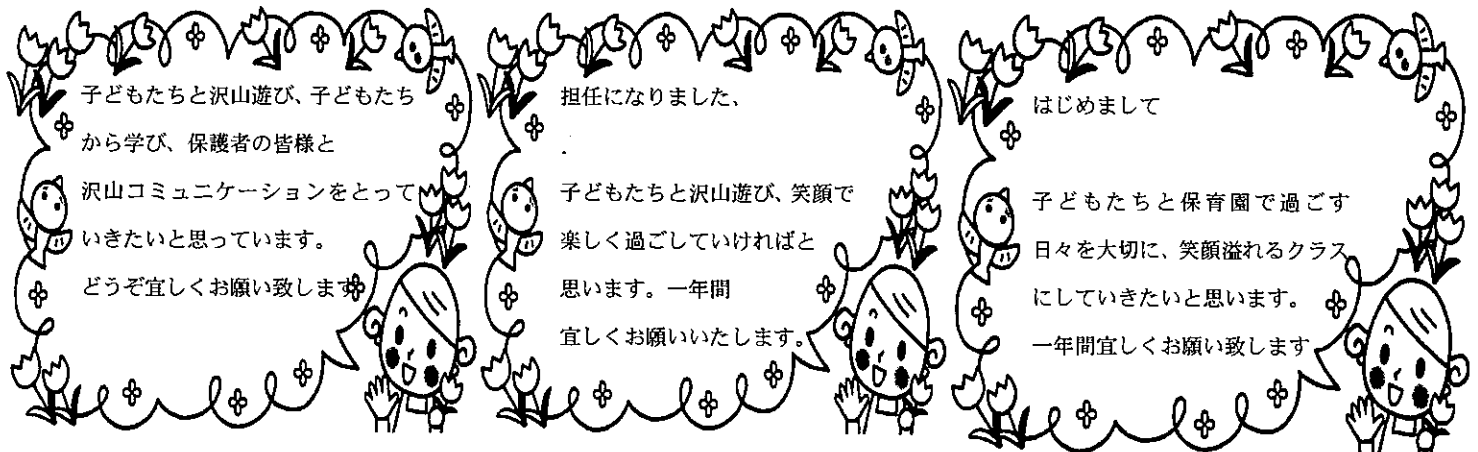 子どもたちと沢山遊び、子どもたち
から学び、保護者の皆様と
沢山コミュニケーションをとって
いきたいと思っています。
どうぞ宜しくお願い致します
担任になりました、
子どもたちと沢山遊び、笑顔で
楽しく過ごしていければと
思います。一年間
宜しくお願いいたします。
はじめまして
子どもたちと保育園で過ごす
日々を大切に、笑顔溢れるクラス
にしていきたいと思います。
一年間宜しくお願い致します